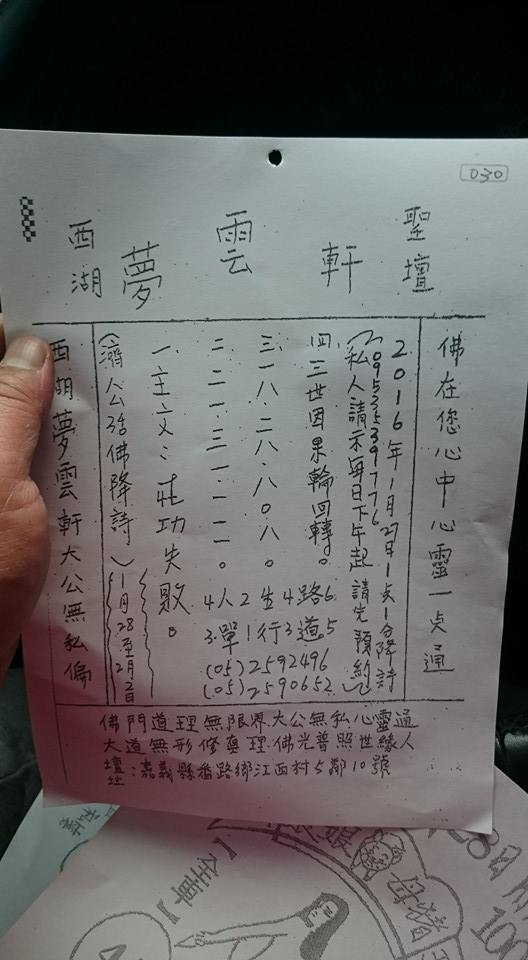 030
西湖 夢雲軒 聖壇
佛在您心中心靈一点通
2016年1月27日1点1分降詩
0953539776
(私人請示每日下午起請先預約)
四.三世因果輪回轉。4路6
3道5
三.一八.二八.八0.八。2生
1行
二.二一.三一.一一一。4人
3.單
(05)2592496
(05)2590652
一.主文:壯功失敗。
(濟人公活佛降詩)1月28至2月2日
西湖夢雲軒大公無私偏
佛門道理無限界大公無私心靈通
大道無形修真理.佛光普照世緣人
壇址:嘉義縣番路鄉江西村5鄰10號
母豬
【全車】
28日
100